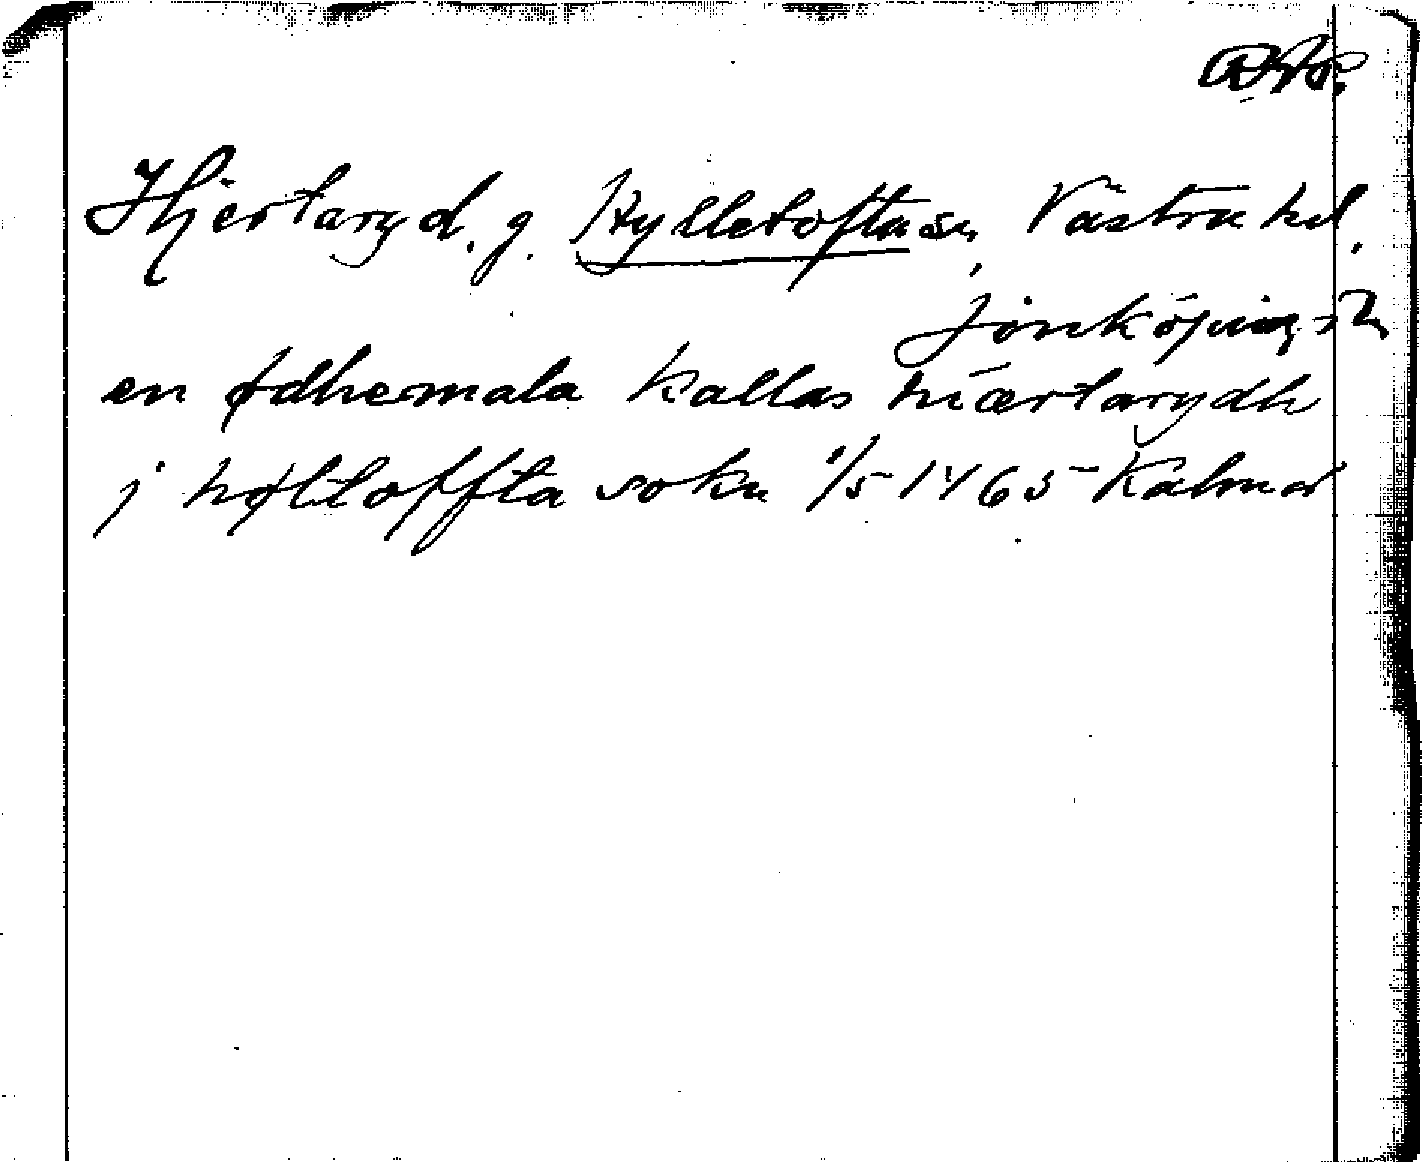 Hjertaryd, g. Hylletofta sn, Västra hd,
Jönköpings l.
en ødhemala kallas hiærtarydh
j høltoffta sokn 1/5 1465 Kalmar